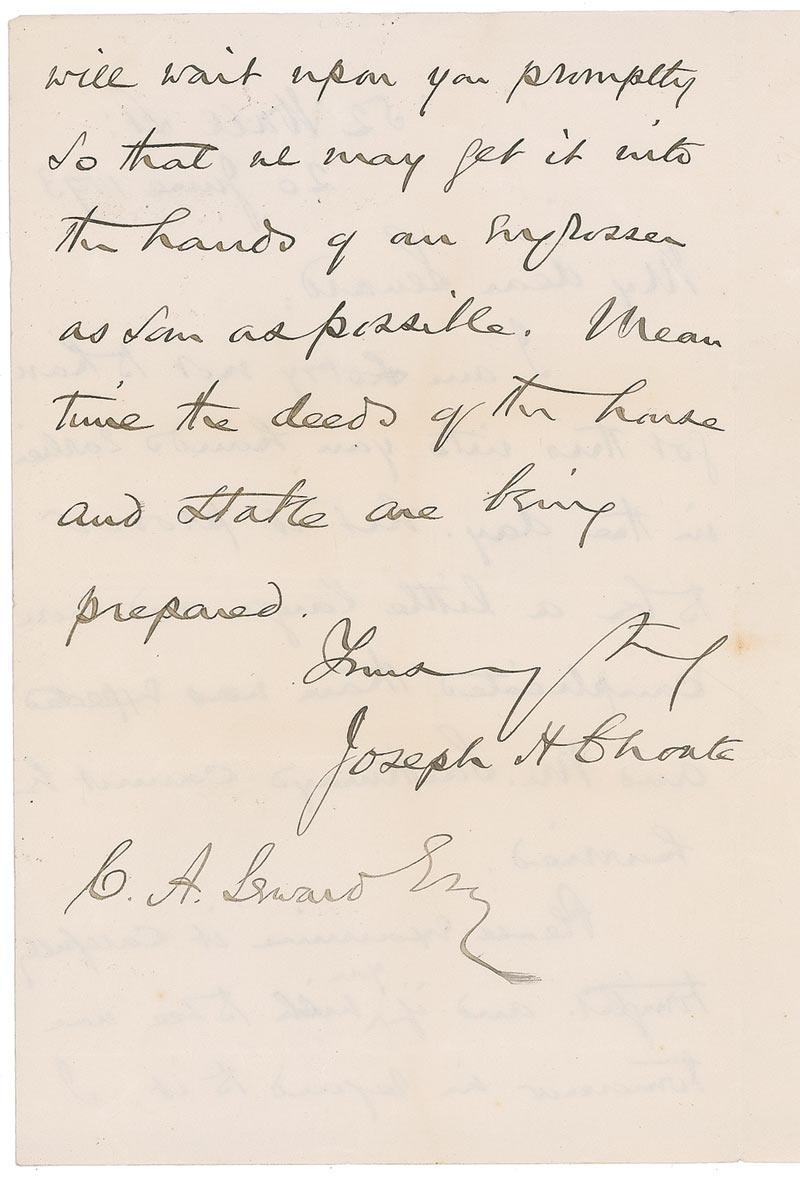 will wait upon you promptly
so that we may get it into
the hands of an Engrosser
as soon as possible. Mean
time the deeds of the house
and stable are being
prepared.
Yours truly
Joseph H Choate
C. A. Seward Esq